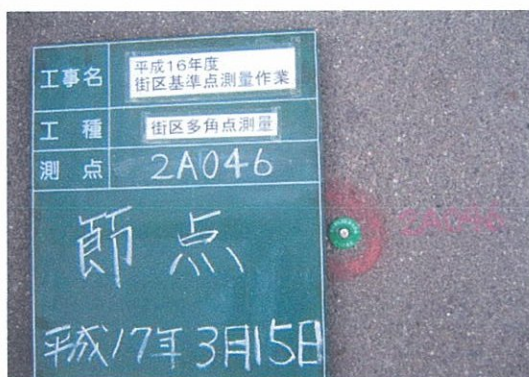 工事名
平成16年度
街区基準点測量作業
工種
街区多角点測量
測点
2A046
2A046
節点
平成17年3月15日